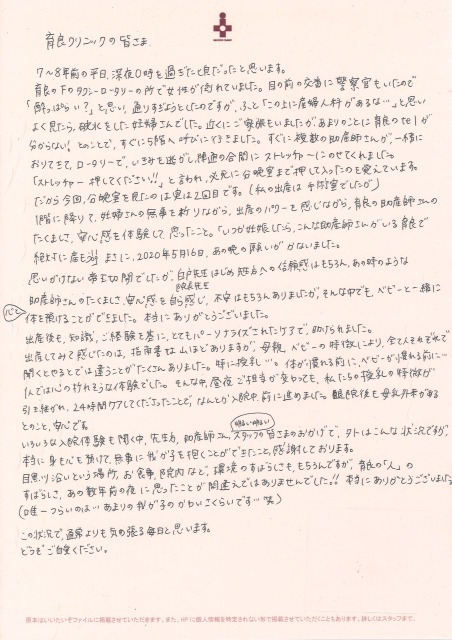 育良クリニックの皆さま
7〜8年前の平日、深夜0時を過ぎた頃だったと思います。
育良の下のタクシーロータリーの所で女性が倒れていました。目の前の交番に警察官もいたので
「酔っぱらい?」と思い、通りすぎようとしたのですが、ふと「この上に産婦人科があるな…」と思い
よく見たら、破水をした妊婦さんでした。近くにご家族もいましたがあまりのことに育良のtelが
分からない!とのことで、すぐに5階へ呼びに行きました。すぐに複数の助産師さんが、一緒に
おりてきて、ロータリーで、いきみを逃がし、陣痛の合間にストレッチャーにのせてくれました。
「ストレッチャー押してください!!」と言われ、必死に分娩室まで押して入ったのを覚えています。
だから今回、分娩室を見たのは実は2回目です。(私の出産は手術室でしたが)
1階に降りて、妊婦さんの無事を祈りながら、出産のパワーを感じながら、育良の助産師さんの
たくましさ、安心感を体験して思ったこと。「いつか妊娠したら、こんな助産師さんがいる育良で
絶対に産もう!!」まさに、2020年5月16日、あの晩の願いがかないました。
思いがけない帝王切開でしたが、白戸先生はじめ処方への信頼感はもちろん、あの時のような
助産師さんのたくましさ、安心感を自ら感じ、不安はもちろんありましたが、そんな中でも、ベビーと一緒に
心と体を預けることができました。本当にありがとうございました。
出産後も、知識、ご経験を基に、とてもパーソナライズされたケアで、助けられました。
出産してみて感じたのは、指南書は山ほどありますが、母親、ベビーの特徴により、全て人それぞれで
聞くとやるとでは違うことがたくさんありました。特に授乳…。体が慣れる前に、ベビーが慣れる前に…
1人では心の折れそうな体験でした。そんな中、昼夜ご担当が変わっても、私たちの授乳の特徴が
引き継がれ、24時間ケアしてくださったことで、なんとか入院中、前に進めました。退院後も母乳外来がある
とのこと、安心です。
いろいろな入院体験も聞く中、先生方、助産師さん、明るい明るいスタッフの皆さまのおかげで、外はこんな状況ですが、
本当に身も心も預けて、無事に我が子を抱くことができたこと、感謝しております。
目黒川沿いという場所、お食事、院内など、環境のすばらしさも、もちろんですが、育良の「人」の
すばらしさ、あの数年前の夜に思ったことが間違えではありませんでした!! 本当にありがとうございました
(唯一つらいのは…あまりの我が子のかわいさくらいです…笑)
この状況で、通常よりも気の張る毎日と思います。
どうぞご自愛ください。
原本はいいたいぞファイルに掲載させていただきます。また、HPに個人情報を特定されない形で掲載させていただくこともあります。詳しくはスタッフまで。